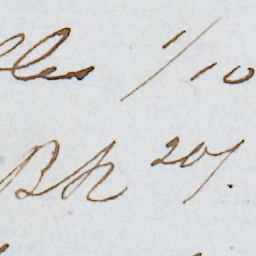 lles 1/10
Bk 20/.